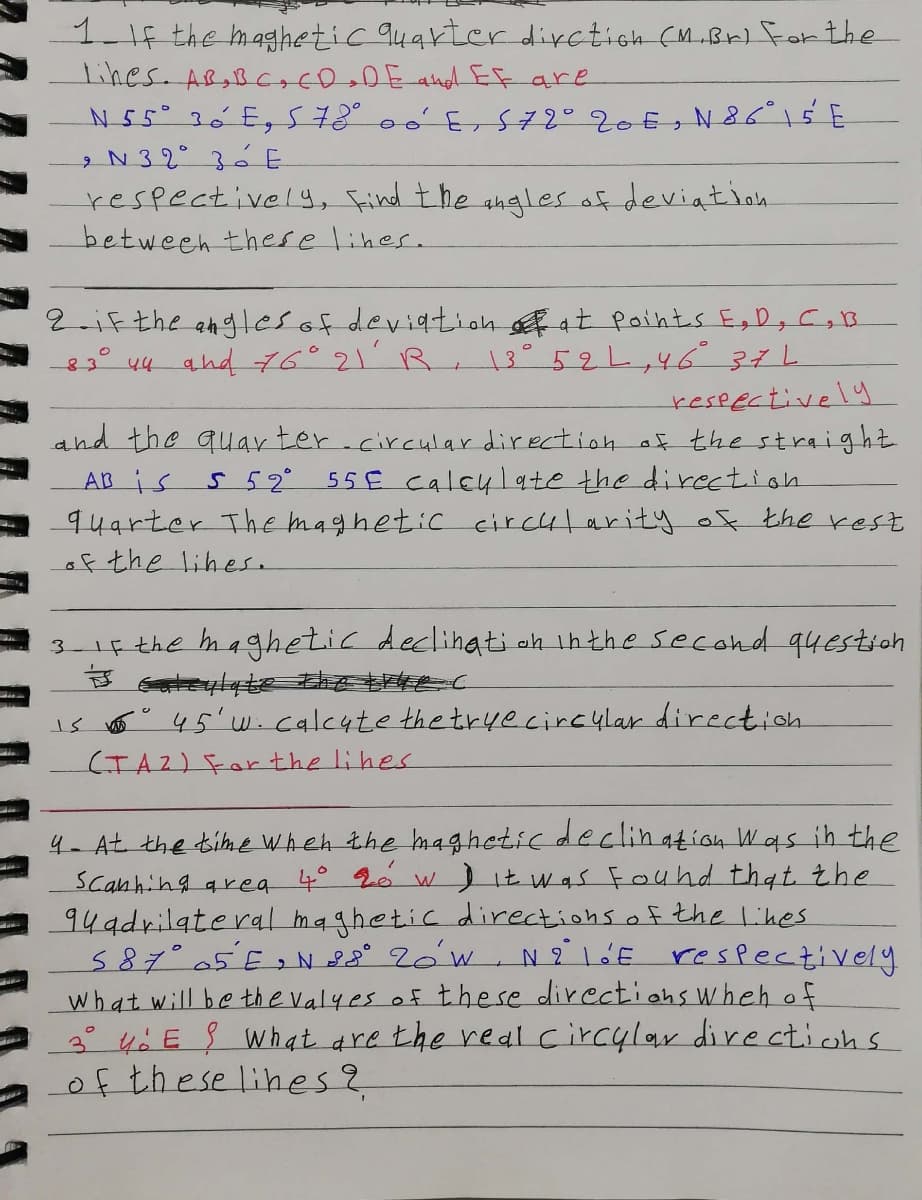 1_ If the maghetic quarter dirction (M.Br) For the
lines. AB, BC, CD, DE and EF are
N 55° 30' E, S 78° 00' E, S 72° 20 E, N 86° 15' E
, N 32° 30' E
respectively, Find the angles of deviation
between these lines.
2_if the angles of deviation at points E, D, C, B
83° 44 and 76° 21' R, 13° 52 L, 46° 37 L
respectively
and the quarter-circular direction of the straight
AB is S 52° 55 E calculate the direction
quarter The magnetic circularity of the rest
of the lines.
3_If the maghetic declination in the second question
is ° 45' w. calcute the true circular direction
(TAZ) For the lines
4_ At the time when the maghetic declination was in the
Scanning area 4° 20' w ) it was Found that the
quadrilateral maghetic directions of the lines
S 87° 05' E, N 88° 20' W, N 2° 10' E respectively
what will be the values of these directions when of
3° 40' E ? What are the real circular directions
of these lines?